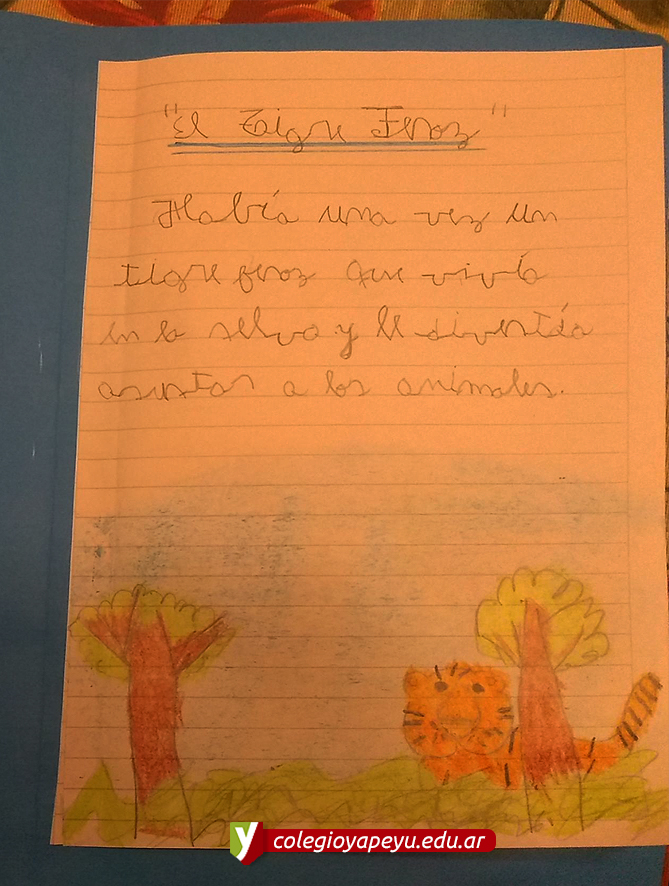 "El Tigre Feroz"
Había una vez un
tigre feroz que vivía
en la selva y le divertía
asustar a los animales.
y colegioyapeyu.edu.ar